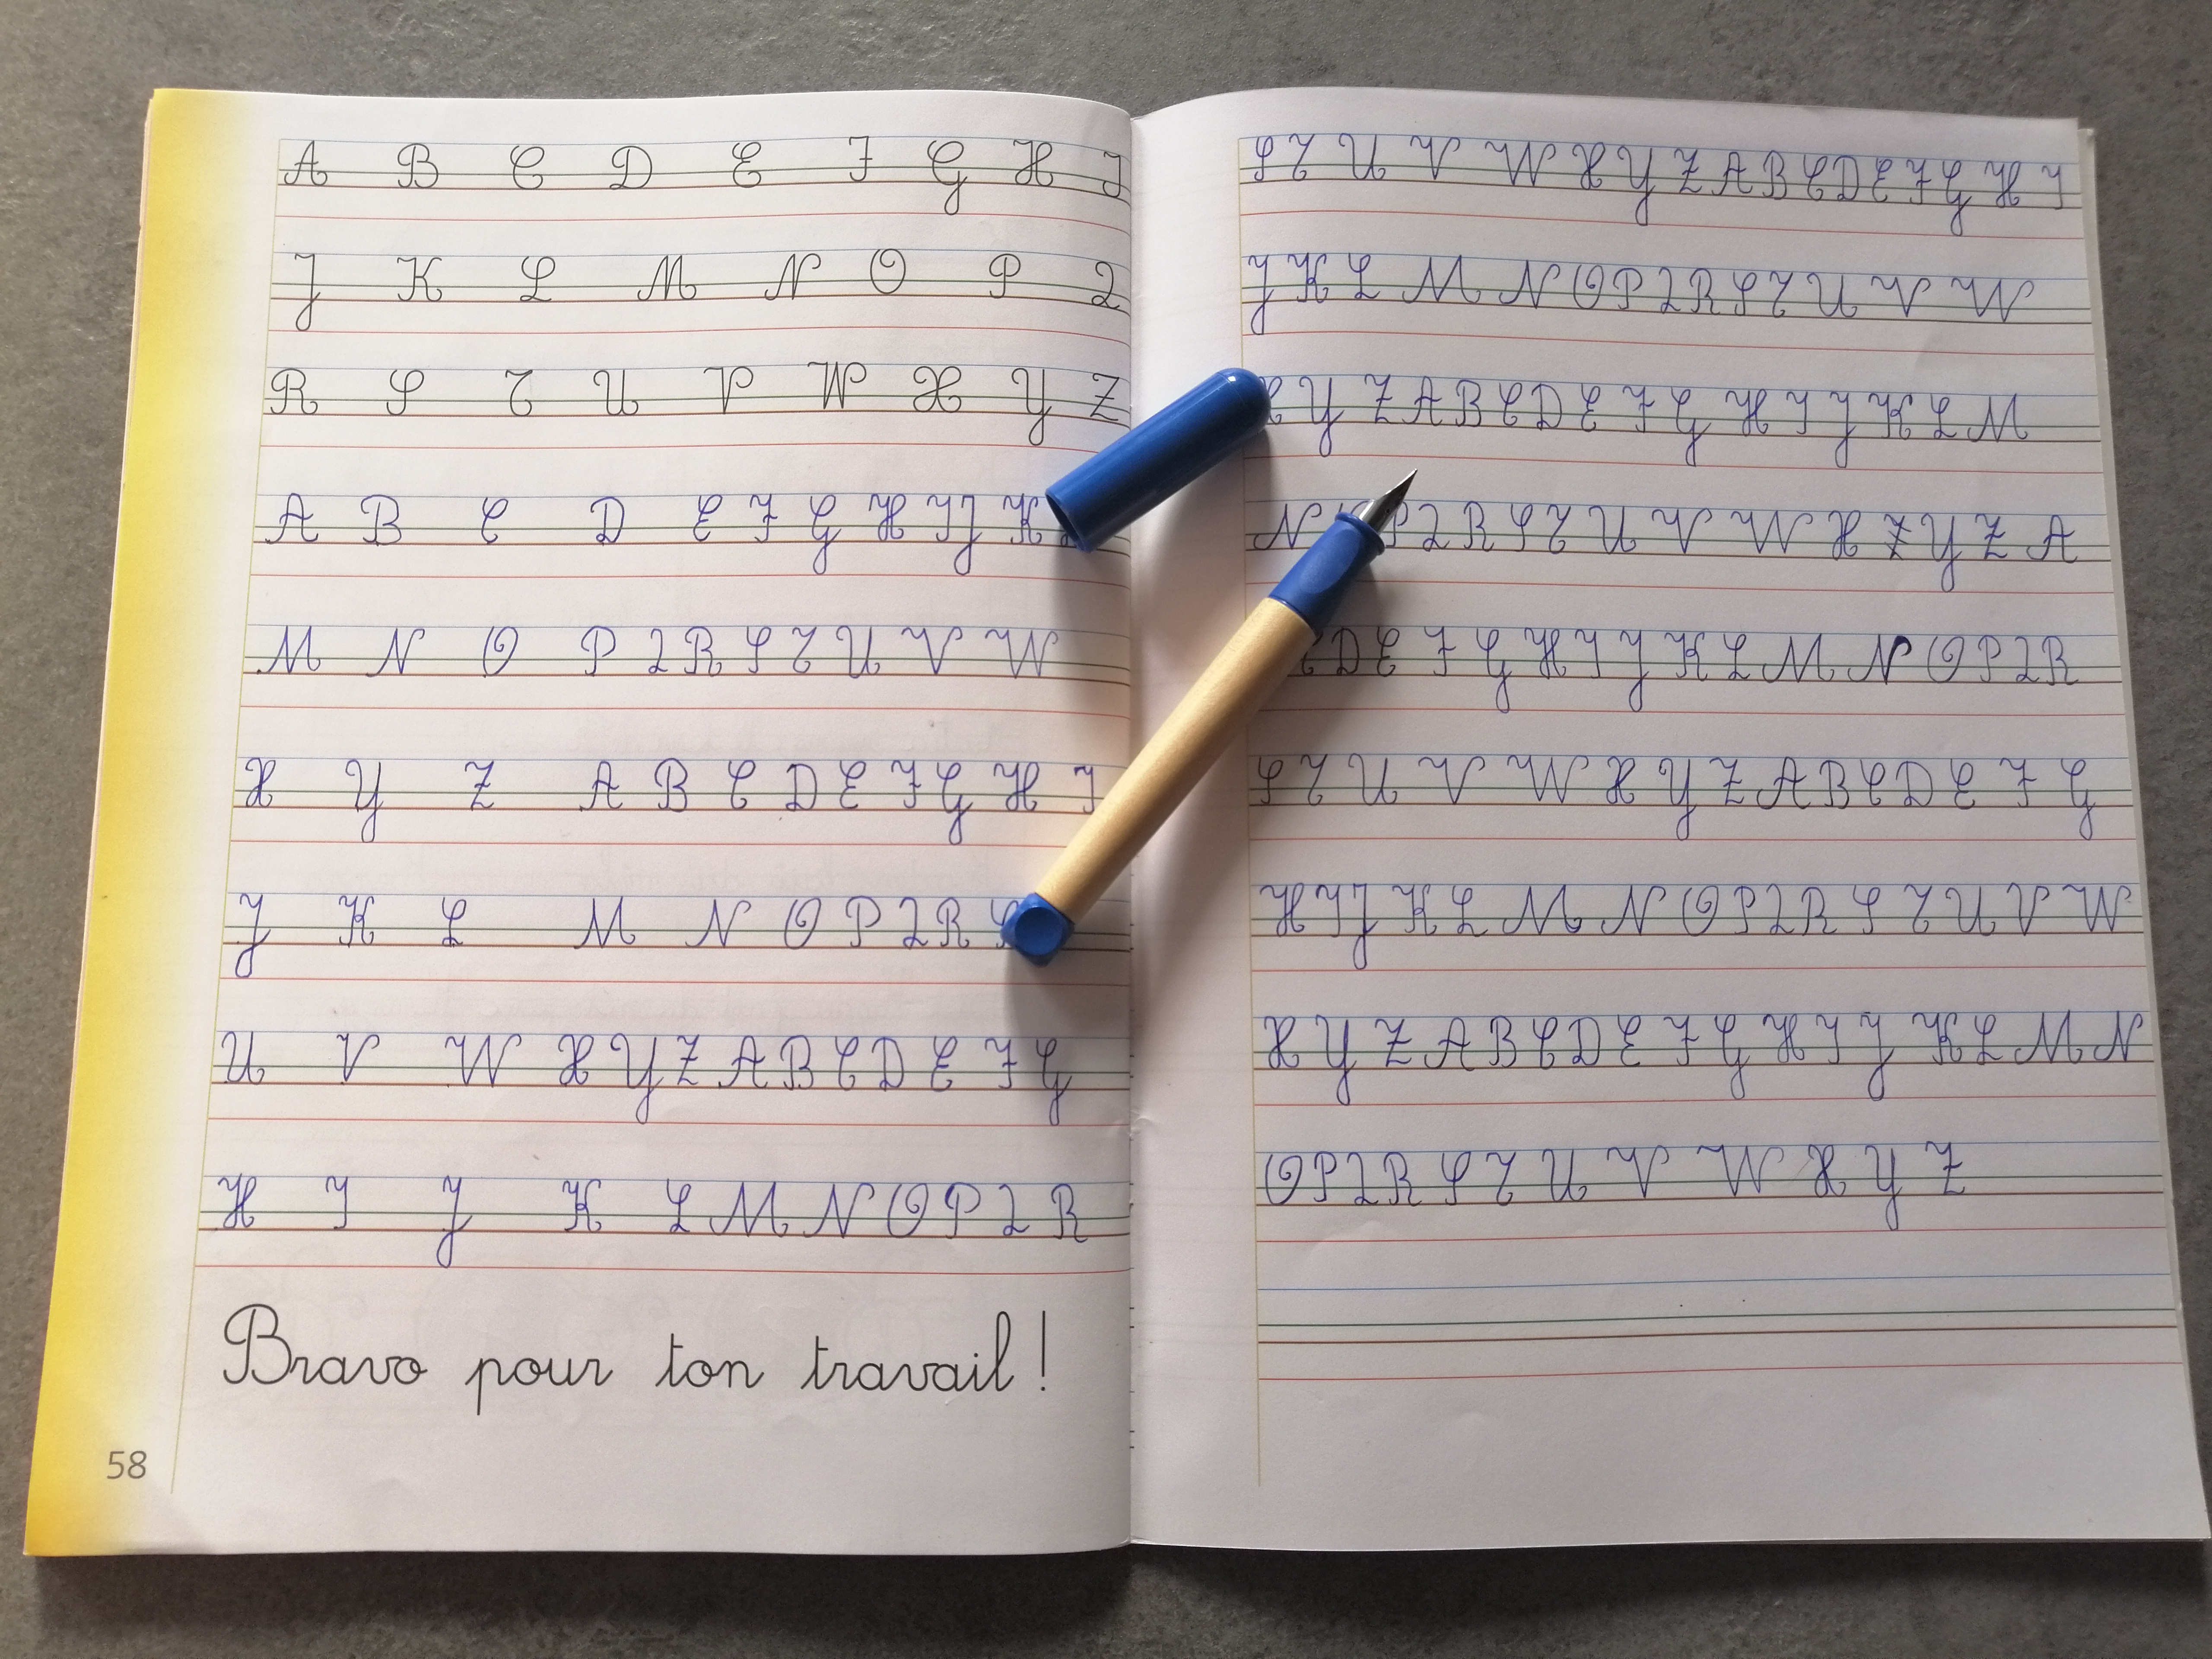 A B C D E F G H I
J K L M N O P Q
R S T U V W X Y Z
A B C D E F G H I J K
M N O P Q R S T U V W
X Y Z A B C D E F G H I
J K L M N O P Q R
U V W X Y Z A B C D E F G
H I J K L M N O P Q R
Bravo pour ton travail !
58
S T U V W X Y Z A B C D E F G H I
J K L M N O P Q R S T U V W
Y Z A B C D E F G H I J K L M
N P Q R S T U V W X Z Y Z A
D E F G H I J K L M N O P Q R
S T U V W X Y Z A B C D E F G
H I J K L M N O P Q R S T U V W
X Y Z A B C D E F G H I J K L M N
O P Q R S T U V W X Y Z